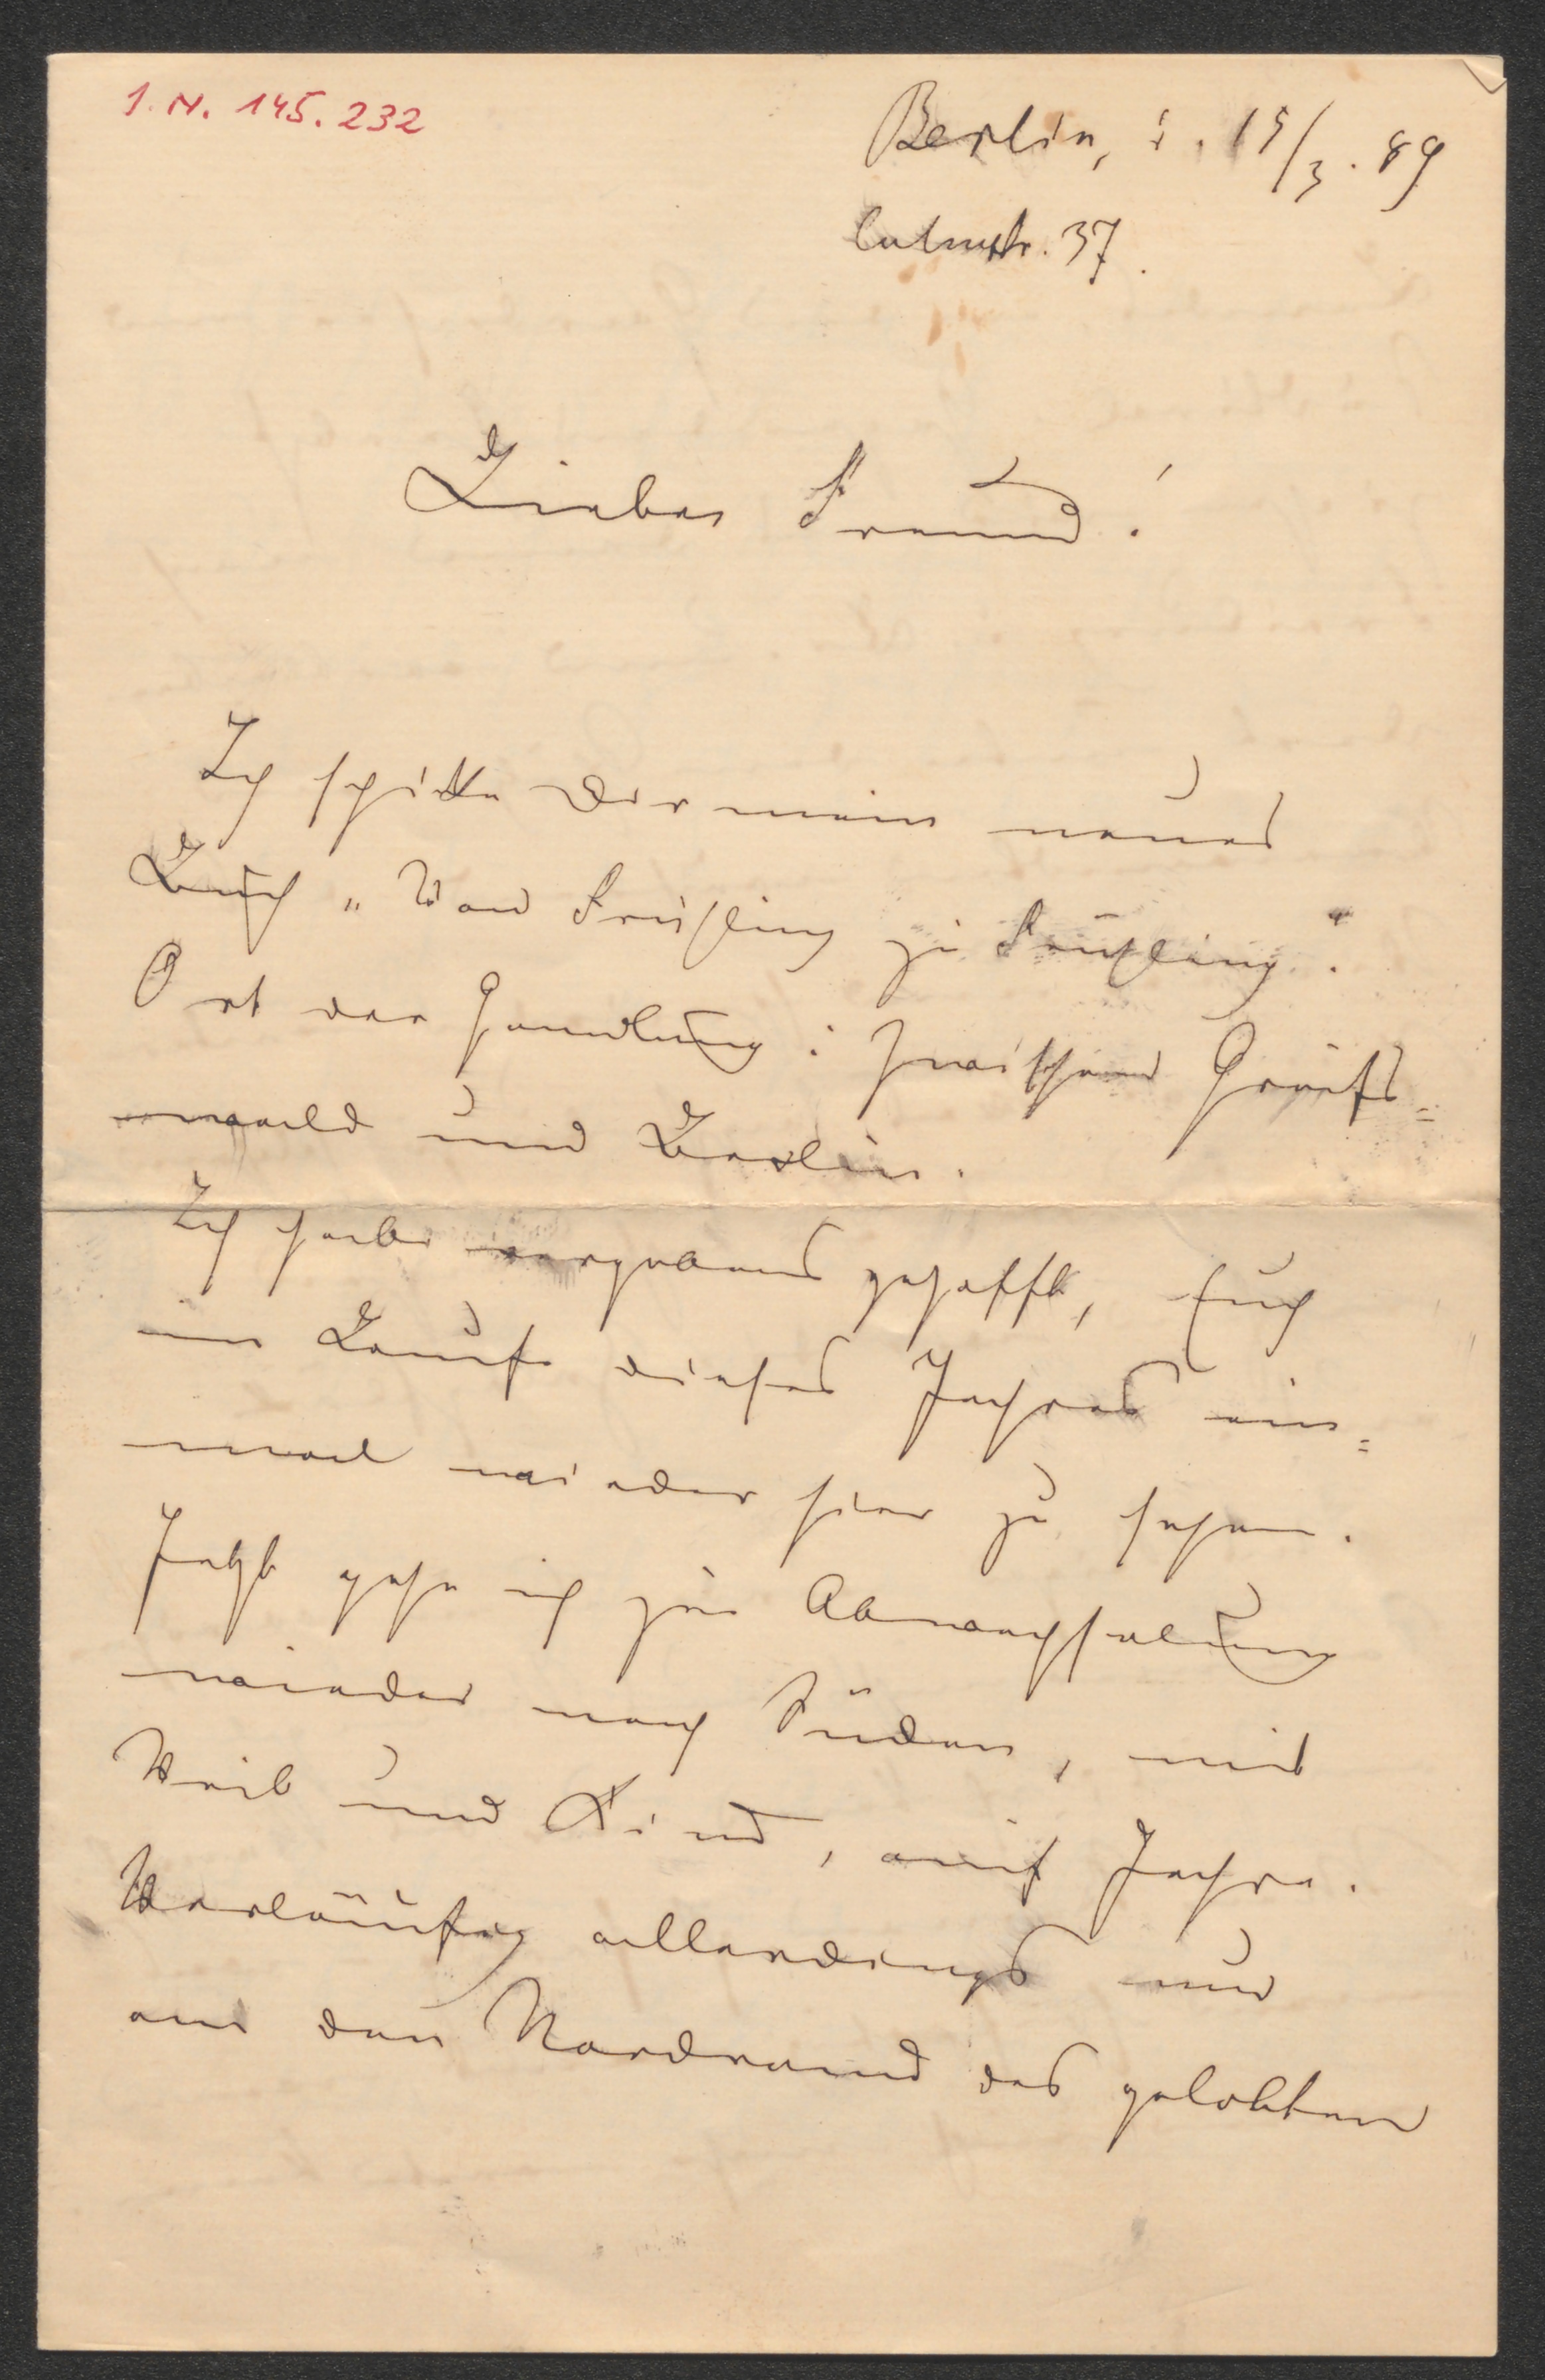 I. N. 145.232
Berlin, d. 15/3. 89
Culmstr. 37.
Lieber Freund!
Ich schicke Dir mein neues
Buch „Von Frühling zu Frühling".
Ort der Handlung: zwischen Greifs=
wald und Berlin.
Ich habe vergebens gehofft, Euch
im Laufe dieses Jahres ein=
mal wieder hier zu sehen.
Jetzt gehe ich zur Abwechselung
wieder nach Süden, mit
Weib und Kind, auf Jahre.
Vorläufig allerdings nur
an den Nordrand des gelobten